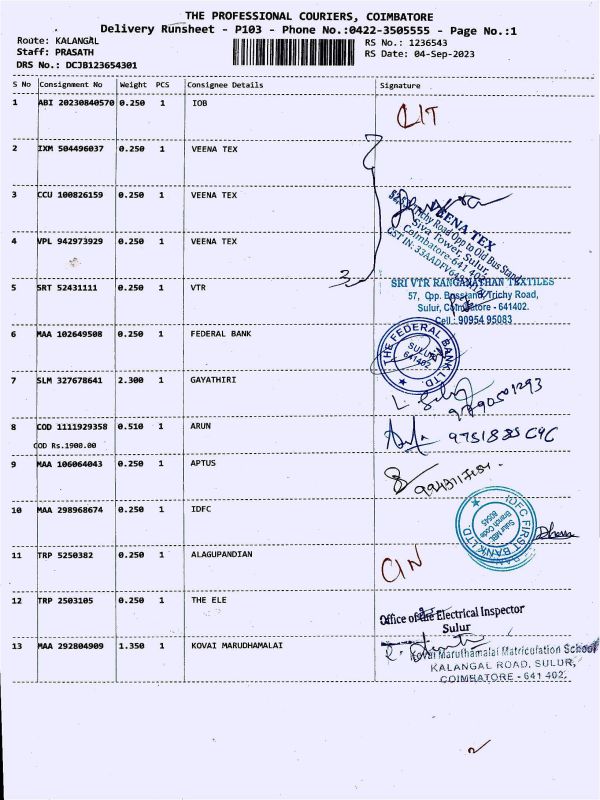 THE PROFESSIONAL COURIERS, COIMBATORE
Delivery Runsheet - P103 - Phone No.:0422-3505555 - Page No.:1
Route: KALANGAL RS No.: 1236543
Staff: PRASATH RS Date: 04-Sep-2023
DRS No.: DCJB123654301
S No Consignment No Weight PCS Consignee Details Signature
1 ABI 20230840570 0.250 1 IOB
2 IXM 504496037 0.250 1 VEENA TEX
3 CCU 100826159 0.250 1 VEENA TEX
4 VPL 942973929 0.250 1 VEENA TEX
VEENA TEX
Trichy Road Opp to Old Bus Stand
Siva Tower, Sulur,
Coimbatore-641 402
3
5 SRT 52431111 0.250 1 VTR
SRI VTR RANGANATHAN TEXTILES
57, Opp. Busstand, Trichy Road,
Sulur, Coimbatore - 641402.
Cell: 90954 95083
6 MAA 102649508 0.250 1 FEDERAL BANK
THE FEDERAL BANK LTD.
SULUR
641402
7 SLM 327678641 2.300 1 GAYATHIRI
9790501293
8 COD 1111929358 0.510 1 ARUN
COD Rs.1900.00
9 MAA 106064043 0.250 1 APTUS
10 MAA 298968674 0.250 1 IDFC
IDFC FIRST BANK LTD
Sulur MBL
Branch Code
80545
11 TRP 5250382 0.250 1 ALAGUPANDIAN
12 TRP 2503105 0.250 1 THE ELE
Office of the Electrical Inspector
Sulur
13 MAA 292804909 1.350 1 KOVAI MARUDHAMALAI
Kovai Maruthamalai Matriculation School
KALANGAL ROAD, SULUR,
COIMBATORE - 641 402.